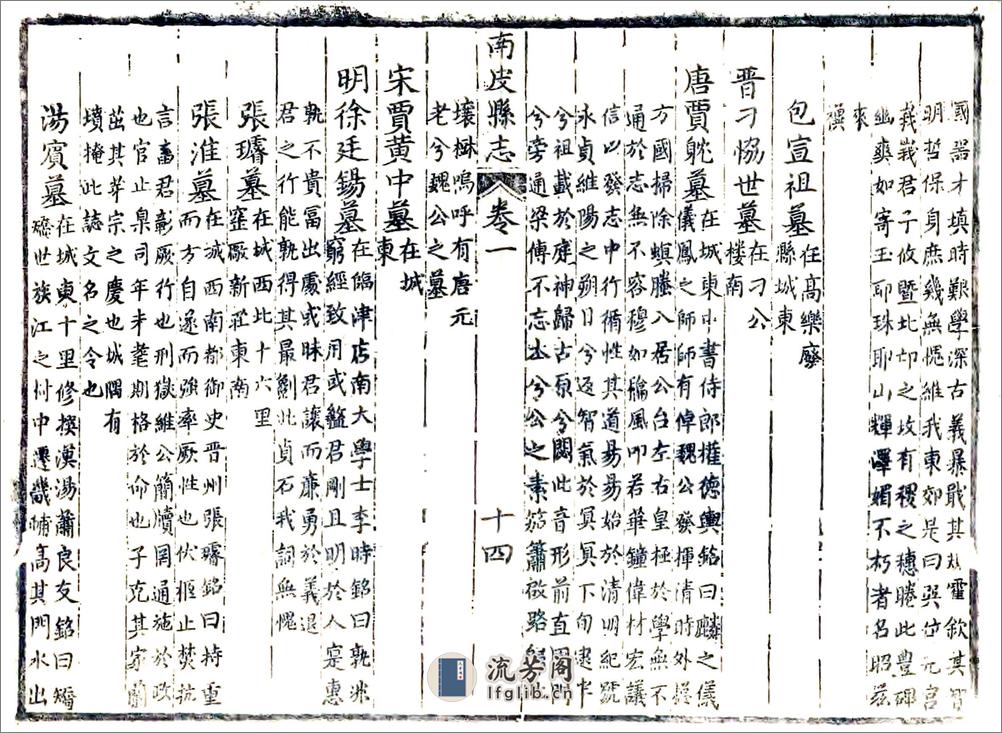 國器才填時艱學深古義暴戢其 霍欽其哲
明哲保身庶幾無愧維我東郊是曰 位元宫
峩峩君子攸暨北邙之坟有稷之穗勝此豐碑
幽爽如寄玉耶珠耶山輝澤媚不朽者名昭茲
來
禩
包宣祖墓在高樂廢
縣城東
晉刁協世墓在刁公
楼南
唐賈躭墓在城東中書侍郎權德輿銘曰麟之儀
儀鳳之師師有倬魏公發揮清時外
方國掃除螟螣入居公台左右皇極於學無不
通於志無不容穆如 風叩若華鐘偉材宏議
信以發志中行循性其道易易始於清明紀號
永貞維陽之朔日兮返智氣於冥冥下旬
兮祖載於庭神歸古原兮閟此音形前直
兮旁通梁傅不忘 兮公之素笳簫啟路
南皮縣志
卷一
十四
壤樹嗚呼有唐元
老兮魏公之墓
宋賈黄中墓在城
東
明徐廷錫墓在臨津店南大學士李時銘曰孰非
窮經致用或 君剛且明於人寔惠
孰不貴富出處或昧君讓而廉勇於義退
君之行能孰得其最劖此貞石我詞無愧
張璿墓在城西北十六里
窪厰新莊東南
張淮墓在城西南都御史晉州張璿銘曰持重
而方自遂而強率厥性也伏枢止焚抗
言 君彰厥行也刑獄維公簡牘罔通施於政
也官止臬司年未耄期格於命也子克其家蘭
茁其芽宗之慶也城隅有
墳掩此誌文名之令也
湯賓墓在城東十里修撰漢湯蕭良友銘曰
世族江之忖中遷畿輔高其門水出
流芳阁
lfglib.cn